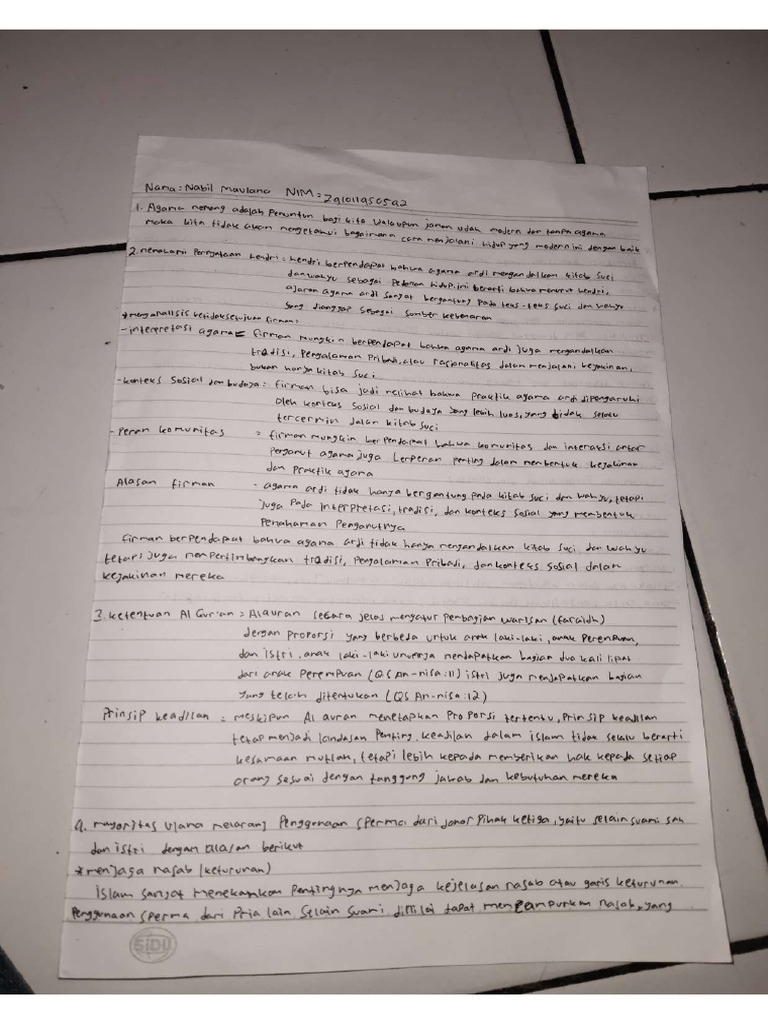 Nama : Nabil Maulana NIM =
1. Agama memang adalah penuntun bagi kita walaupun jaman udah modern dan tanpa agama
maka kita tidak akan mengetahui bagaimana cara menjalani hidup yang modern ini dengan baik
2. memahami pernyataan hendri = hendri berpendapat bahwa agama ardi mengandalkan kitab suci
dan wahyu sebagai pedoman hidup. ini berarti bahwa menurut hendri,
ajaran agama ardi sangat bergantung pada teks-teks suci dan wahyu
yang dianggap sebagai sumber kebenaran
*menganalisis ketidaksetujuan firman :
- interpretasi agama = firman mungkin berpendapat bahwa agama ardi juga mengandalkan
tradisi, pengalaman pribadi, atau rasionalitas dalam menjalani keyakinan,
bukan hanya kitab suci
- konteks sosial dan budaya : firman bisa jadi melihat bahwa praktik agama ardi dipengaruhi
oleh konteks sosial dan budaya yang lebih luas, yang tidak selalu
tercermin dalam kitab suci
- peran komunitas = firman mungkin berpendapat bahwa komunitas dan interaksi antar
penganut agama juga berperan penting dalam membentuk keyakinan
dan praktik agama
Alasan firman - agama ardi tidak hanya bergantung pada kitab suci dan wahyu, tetapi
juga pada interpretasi, tradisi, dan konteks sosial yang membentuk
pemahaman penganutnya
firman berpendapat bahwa agama ardi tidak hanya mengandalkan kitab suci dan wahyu
tetapi juga mempertimbangkan tradisi, pengalaman pribadi, dan konteks sosial dalam
keyakinan mereka
3. ketentuan Al Qur'an = Alquran secara jelas mengatur pembagian warisan (faraidh)
dengan proporsi yang berbeda untuk anak laki-laki, anak perempuan,
dan istri, anak laki-laki umumnya mendapatkan bagian dua kali lipat
dari anak perempuan (QS An-nisa : 11) istri juga mendapatkan bagian
yang telah ditentukan (QS An-nisa : 12)
Prinsip keadilan = meskipun Al quran menetapkan proporsi tertentu, prinsip keadilan
tetap menjadi landasan penting. keadilan dalam islam tidak selalu berarti
kesamaan mutlak, tetapi lebih kepada memberikan hak kepada setiap
orang sesuai dengan tanggung jawab dan kebutuhan mereka
4. mayoritas ulama melarang penggunaan sperma dari donor pihak ketiga, yaitu selain suami sah
dan istri dengan alasan berikut
*menjaga nasab (keturunan)
Islam sangat menekankan pentingnya menjaga kejelasan nasab atau garis keturunan.
Penggunaan sperma dari pria lain selain suami dinilai dapat mencampurkan nasab, yang
SIDU